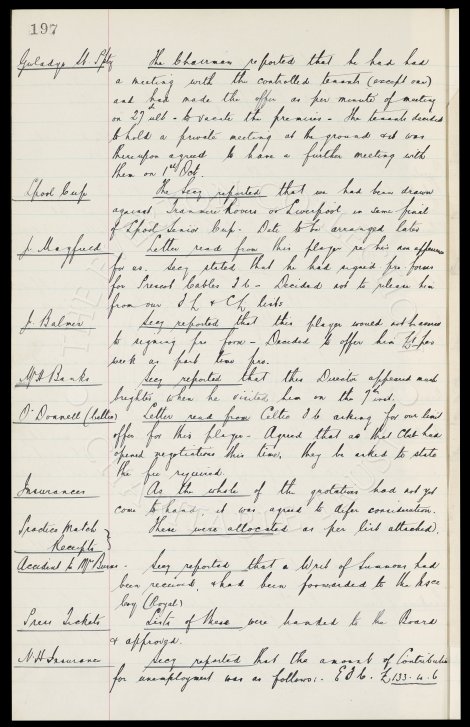 197
Guladys St Ppty The Chairman reported that he had had
a meeting with the controlled tenants (except one)
and had made the offer as per minute of meeting
on 27th ult - to vacate the premises - The tenants decided
to hold a private meeting at the ground & it was
thereupon agreed to have a further meeting with
them on 1st Oct.
Lpool Cup The Secy reported that we had been drawn
against Tranmere Rovers or Liverpool in semi final
of Lpool Senior Cup. Date to be arranged later
J. Mayfield Letter read from this player re his non appearance
for us. Secy stated that he had signed pro forms
for Prescot Cables F.C. - Decided not to release him
from our F.L. & C.L. lists
J. Balmer Secy reported that this player would not be averse
to signing pro form - Decided to offer him per
week as part time pro.
Mr H. Banks Secy reported that this Director appeared much
brighter when he visited him on the 9th inst.
O'Donnell (Celtic) Letter read from Celtic F.C. asking for our limit
offer for this player - Agreed that as that Club had
opened negotiations this time, they be asked to state
the fee required.
Insurances As the whole of the quotations had not yet
come to hand, it was agreed to defer consideration.
Practice Match These were allocated as per list attached.
Receipts }
Accident to Mr Burns - Secy reported that a Writ of Summons had
been received, & had been forwarded to the Insce
Coy (Royal)
Press Tickets Lists of these were handed to the Board
& approved.
N.H. Insurance Secy reported that the amount of Contribution
for unemployment was as follows:- E.F.C. £133.4.6